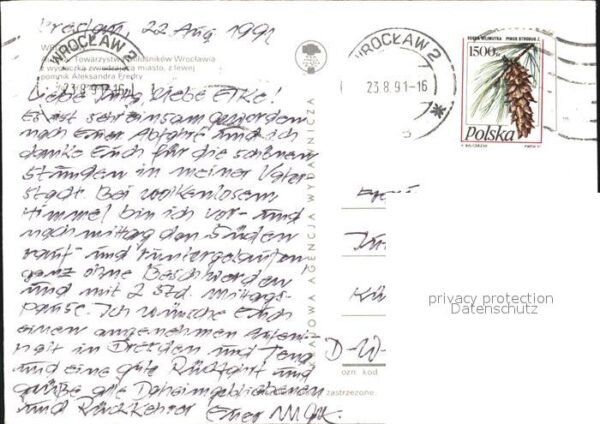 Wrocław, 22 Aug 1991
WROCŁAW 2
23.8.91-16
Towarzystwo Miłośników Wrocławia
wycieczka zwiedzająca miasto, z lewej
pomnik Aleksandra Fredry
Liebe Liebe Elke!
Es ist sehr einsam geworden
nach Eurer Abfahrt und ich
danke Euch für die schönen
Stunden in meiner Vater
stadt. Bei wolkenlosem
Himmel bin ich vor- und
nachmittag den Sudden
rauf- und runtergelaufen
ganz ohne Beschwerden
und mit 2 Std. Mittags-
pause. Ich wünsche Euch
einen angenehmen Aufent-
halt in Dresden und
und eine gute Rückfahrt und
grüße alle Daheimgebliebenen
und Rückkehrer Euer
WROCŁAW 2
23.8.91-16
1500 zł
SOSNA WEJMUTKA PINUS STROBUS L.
Polska
AGENCJA WYDAWNICZA
D-W-
ozn. kod.
zastrzeżone.
privacy protection
Datenschutz